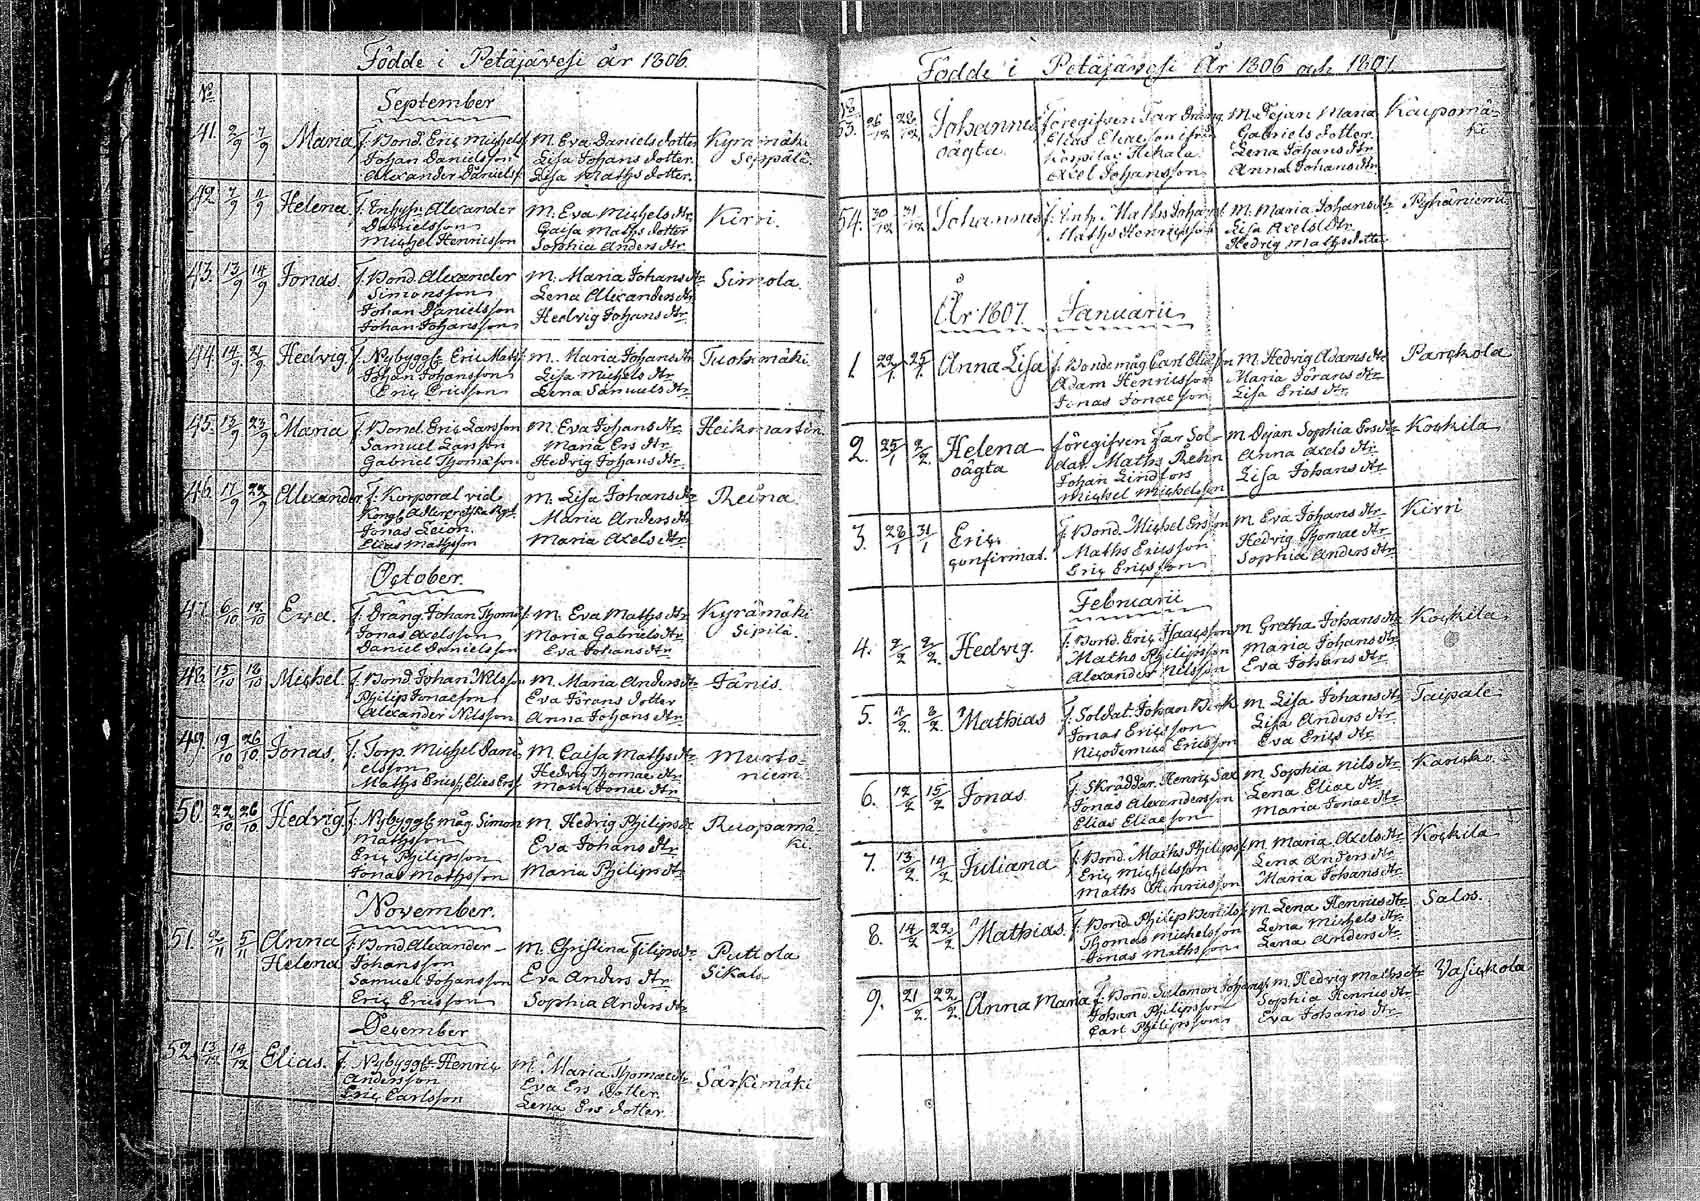 Födde i Petäjävesi år 1806
No
September
41. 2/9 7/9 Maria f. Bond. Eric Michelss
Johan Danielsson
Alexander Danielss
M. Eva Daniels dotter
Lisa Johans dotter
Lisa Maths dotter.
Kyrämäki
Seppälä.
42 7/9 11/9 Helena f. Inhys. Alexander
Danielsson
Michel Henricsson
M. Eva Michels dtr
Caisa Maths dotter
Sophia Anders dtr
Kirri.
43. 13/9 14/9 Jonas. f. Bond. Alexander
Simonsson
Johan Danielsson
Johan Johansson
M. Maria Johans dtr
Lena Alexanders dtr
Hedvig Johans dtr
Simola.
44. 14/9 21/9 Hedvig f. Nybyggr Eric Matss
Johan Johansson
Eric Ericsson
M. Maria Johans dtr
Lisa Michels dtr
Lena Samuels dtr
Tuohimäki.
45. 13/9 23/9 Maria f. Bond. Eric Larsson
Samuel Larsson
Gabriel Thomasson
M. Eva Johans dtr
Maria Ers dtr
Hedvig Johans dtr
Heikmartin.
46. 17/9 22/9 Alexander f. Korporal vid
Kongl. Adlercreutzka Rgt.
Jonas Leion.
Elias Mathsson
M. Lisa Johans dtr
Maria Anders dtr
Maria Axels dtr
Reina.
October.
47. 6/10 12/10 Eva. f. Dräng. Johan Thomass
Jonas Axelsson
Daniel Danielsson
M. Eva Maths dtr
Maria Gabriels dtr
Eva Johans dtr
Kyrämäki
Sipilä.
48. 15/10 18/10 Michel f. Bond. Johan Nilsson
Philip Jonaeson
Alexander Nilsson
M. Maria Anders dtr
Eva Jörans dotter
Anna Johans dtr
Jänis.
49. 19/10 26/10 Jonas. f. Torp. Michel Dani-
elsson
Maths Ericss, Elias Erss
M. Caisa Maths dtr
Hedvig Thomae dtr
Maria Jonae dtr
Murto-
niemi
50. 22/10 26/10 Hedvig f. Nybyggr måg Simon
Mathsson
Eric Philipsson
Jonas Mathsson
M. Hedvig Philips dr
Eva Johans dtr
Maria Philips dtr
Ruopamä-
ki.
November.
51. 2/11 5/11 Anna
Helena
f. Bond Alexander
Johansson
Samuel Johansson
Eric Ericsson
M. Christina Filips dr
Eva Anders dtr
Sophia Anders dtr
Puttola
Sikala
December
52. 13/12 14/12 Elias. f. Nybyggr Henric
Andersson
Eric Carlsson
M. Maria Thomae dr
Eva Ers Dotter
Lena Ers dotter
Särkimäki
Födde i Petäjävesi År 1806 och 1807.
No
53. 26/12 28/12 Johannes
oägta
föregifven Far Dräng
Elias Eliaeson ifrån
Kapellet Hekala
Axel Johansson
M. Pejan Maria
Gabriels dotter.
Lena Johans dtr
Anna Johans dtr.
Kaupomä-
ki
54. 30/12 31/12 Johannes f. Inh. Maths Johanss
Maths Henricsson
M. Maria Johans dtr
Lisa Axels dtr
Hedvig Maths dotter
Pyhäniemi
År 1807. Januarii
1. 22/1 25/1. Anna Lisa f. Bondemåg Carl Eliaesson
Adam Henricsson
Jonas Jonaeson
M. Hedvig Adams dtr
Maria Jörans dtr
Lisa Erics dtr
Parckola
2. 25/1 2/2. Helena
oägta
föregifven Far Sol-
dat. Maths Rehn
Johan Lindfors
Michel Michelsson
M. Pejan Sophia Ers dtr
Anna Axels dtr
Lisa Johans dtr
Kockila
3. 28/1 31/1 Eric
confirmat.
f. Bond. Michel Ersson
Maths Ericsson
Eric Ericsson
M. Eva Johans dtr
Hedvig Thomae dtr
Sophia Anders dtr
Kirri
Februarii
4. 2/2 2/2. Hedvig. f. Bond. Eric Isaacsson
Maths Philipsson
Alexander Nilsson
M. Gretha Johans dtr
Maria Johans dtr
Eva Johans dtr
Kockila
5. 2/2 3/2 Mathias f. Soldat. Johan Berk
Jonas Ericsson
Nicodemus Ericsson
M. Lisa Johans dtr
Lisa Anders dtr
Eva Erics dtr
Taipale
6. 12/2 15/2 Jonas. f. Skräddar. Henric Sax
Jonas Alexandersson
Elias Eliaeson
M. Sophia Nils dtr
Lena Eliae dtr
Maria Jonae dtr
7. 13/2 14/2 Juliana f. Bond. Maths Philipss
Eric Michelsson
Maths Henricsson
M. Maria Axels dtr
Lena Anders dtr
Maria Johans dtr
Kockila
8. 14/2 22/2 Mathias. f. Bond. Philip Bertilss
Thomas Michelsson
Jonas Mathsson
M. Lena Henrics dtr
Lena Michels dtr
Lena Anders dtr
Salos.
9. 21/2. 22/2. Anna Maria f. Bond. Salamon Johanss
Johan Philipsson
Carl Philipsson
M. Hedvig Maths dtr
Sophia Henrics dtr
Eva Johans dtr
Vasickola